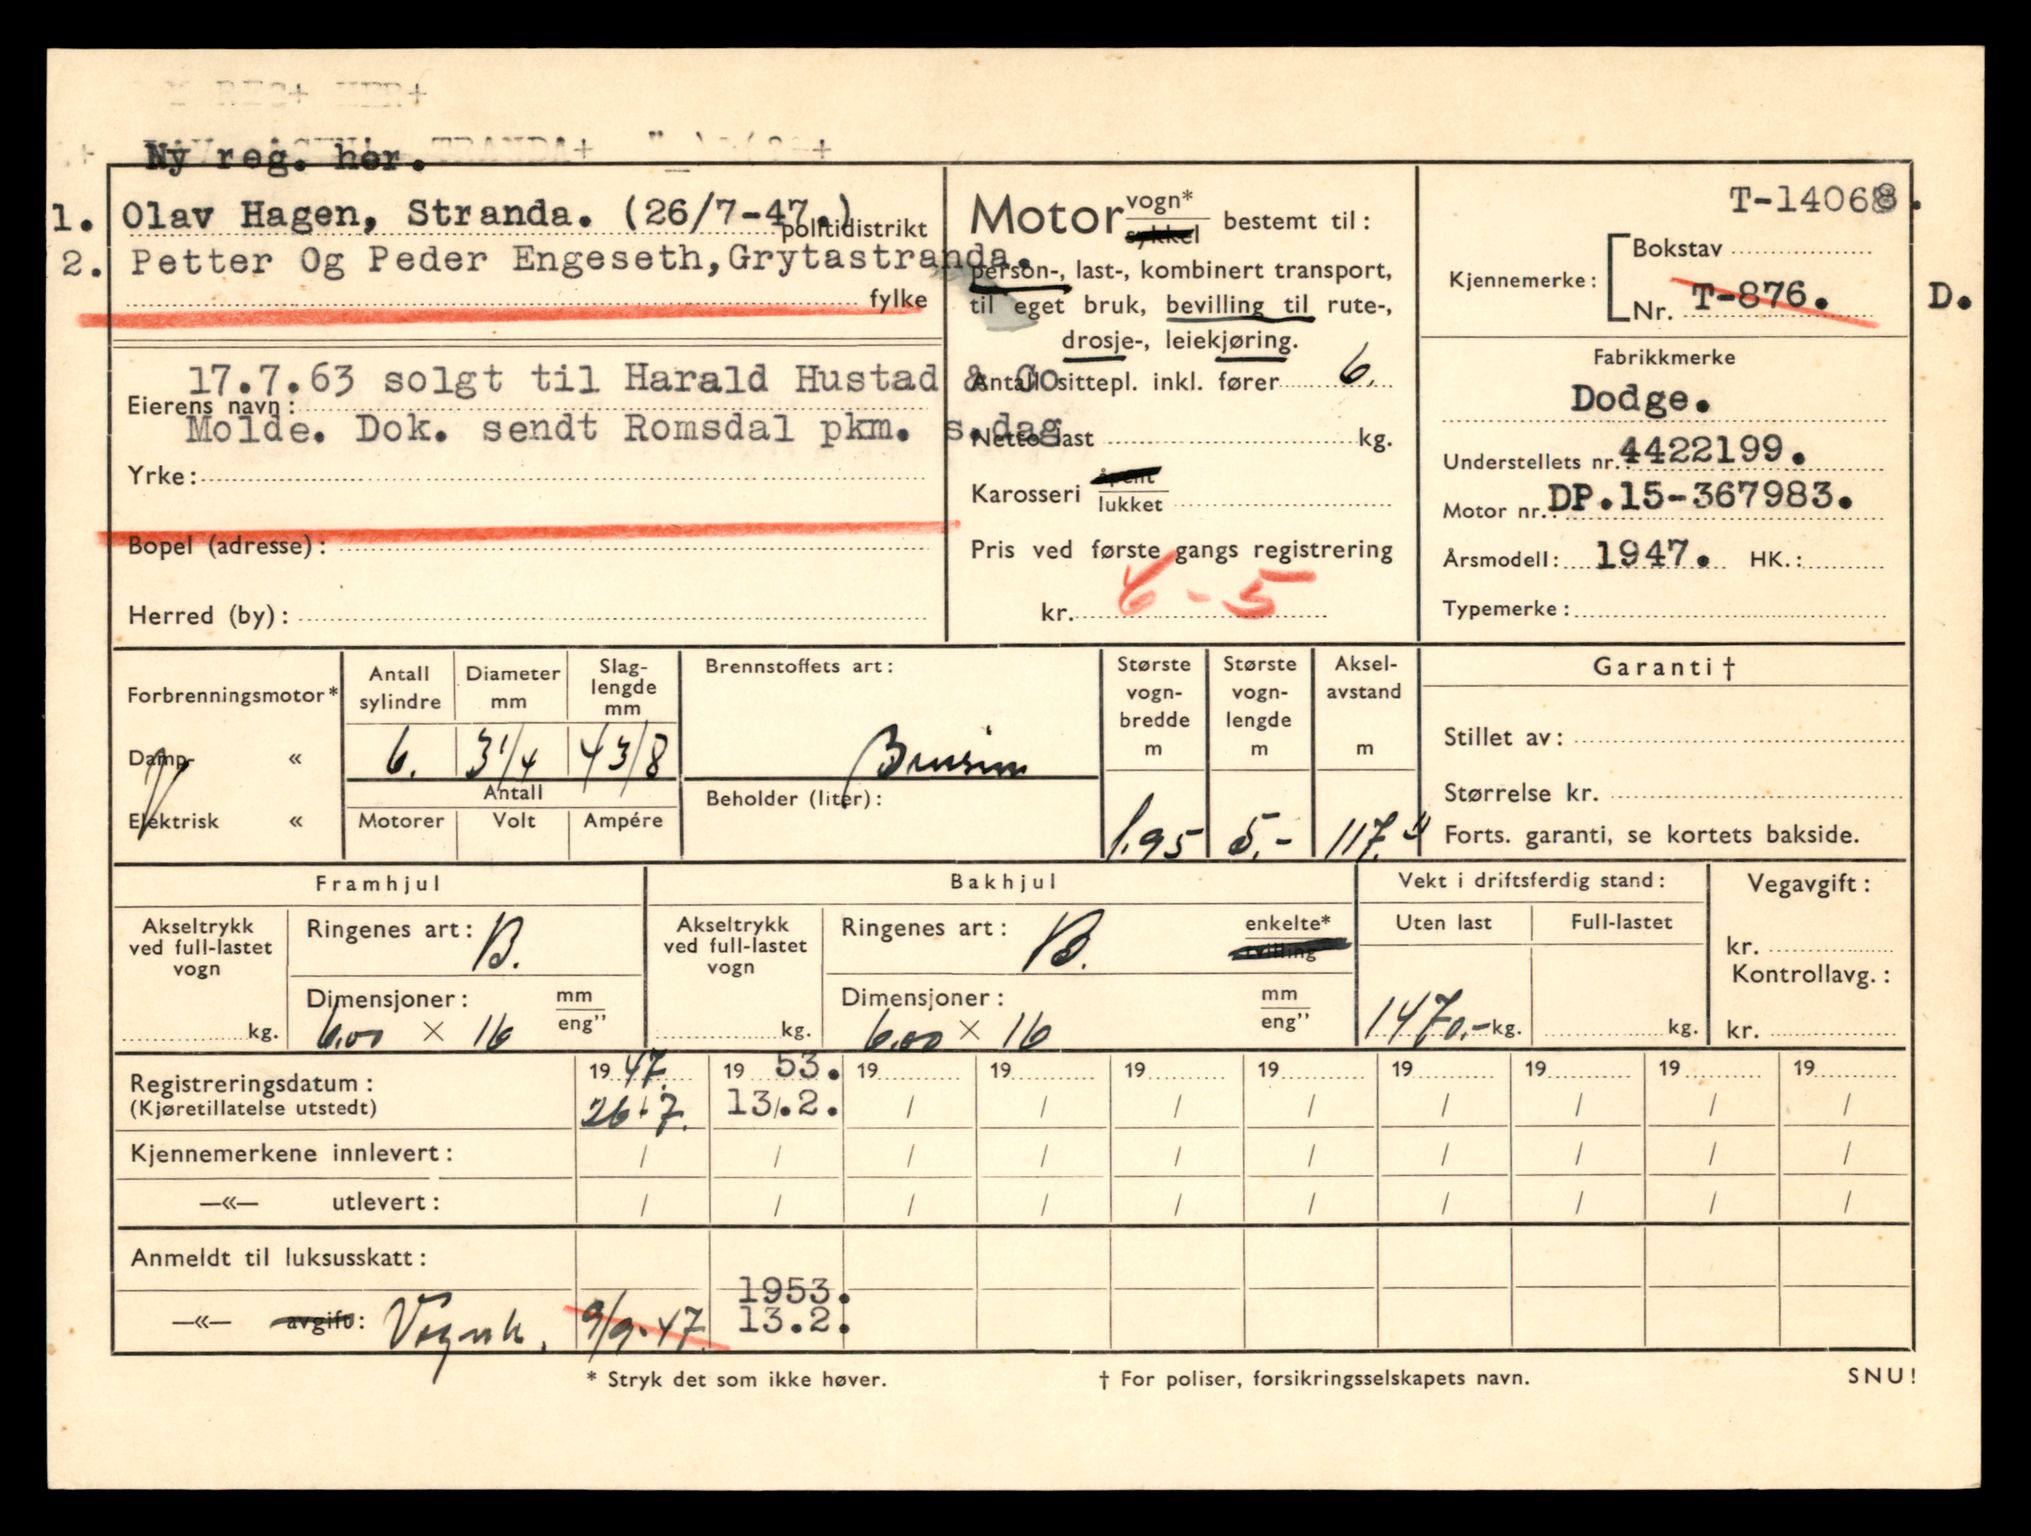 M REG+ HER+
Ny reg. her. TRANDA+
1. Olav Hagen, Stranda. (26/7-47.) politidistrikt
2. Petter Og Peder Engeseth, Grytastranda.
fylke
17.7.63 solgt til Harald Hustad & Co
Eierens navn:
Molde. Dok. sendt Romsdal pkm. s.dag
Yrke:
Bopel (adresse):
Herred (by):
Motor vogn* sykkel bestemt til:
person-, last-, kombinert transport,
til eget bruk, bevilling til rute-,
drosje-, leiekjøring.
Antall sittepl. inkl. fører 6.
Netto last kg.
Karosseri åpent lukket
Pris ved første gangs registrering
kr. 6 - 5
T-14068.
Bokstav
Kjennemerke:
Nr. T-876. D.
Fabrikkmerke
Dodge.
Understellets nr.: 4422199.
Motor nr.: DP.15-367983.
Årsmodell: 1947. HK.:
Typemerke:
Forbrenningsmotor*
Damp- «
Elektrisk «
Antall sylindre
Diameter mm
Slag-lengde mm
6. 3 1/4 4 3/8
Antall
Motorer Volt Ampére
Brennstoffets art:
Bensin
Beholder (liter):
Største vogn-bredde m
Største vogn-lengde m
Aksel-avstand m
1.95 5.- 117."
Garanti †
Stillet av:
Størrelse kr.
Forts. garanti, se kortets bakside.
Framhjul
Akseltrykk ved full-lastet vogn
kg.
Ringenes art: B.
Dimensjoner: mm eng''
6.00 × 16
Bakhjul
Akseltrykk ved full-lastet vogn
kg.
Ringenes art: B. enkelte* tvilling
Dimensjoner: mm eng''
6.00 × 16
Vekt i driftsferdig stand:
Uten last Full-lastet
1470.- kg. kg.
Vegavgift:
kr.
Kontrollavg.:
kr.
Registreringsdatum: 19 47. 19 53. 19 19 19 19 19 19 19 19
(Kjøretillatelse utstedt) 26/7. 13/.2. / / / / / / / /
Kjennemerkene innlevert: / / / / / / / / / /
—«— utlevert: / / / / / / / / / /
Anmeldt til luksusskatt:
1953.
—«— avgift: Vognk. 9/9.47. 13.2.
* Stryk det som ikke høver.
† For poliser, forsikringsselskapets navn.
SNU!